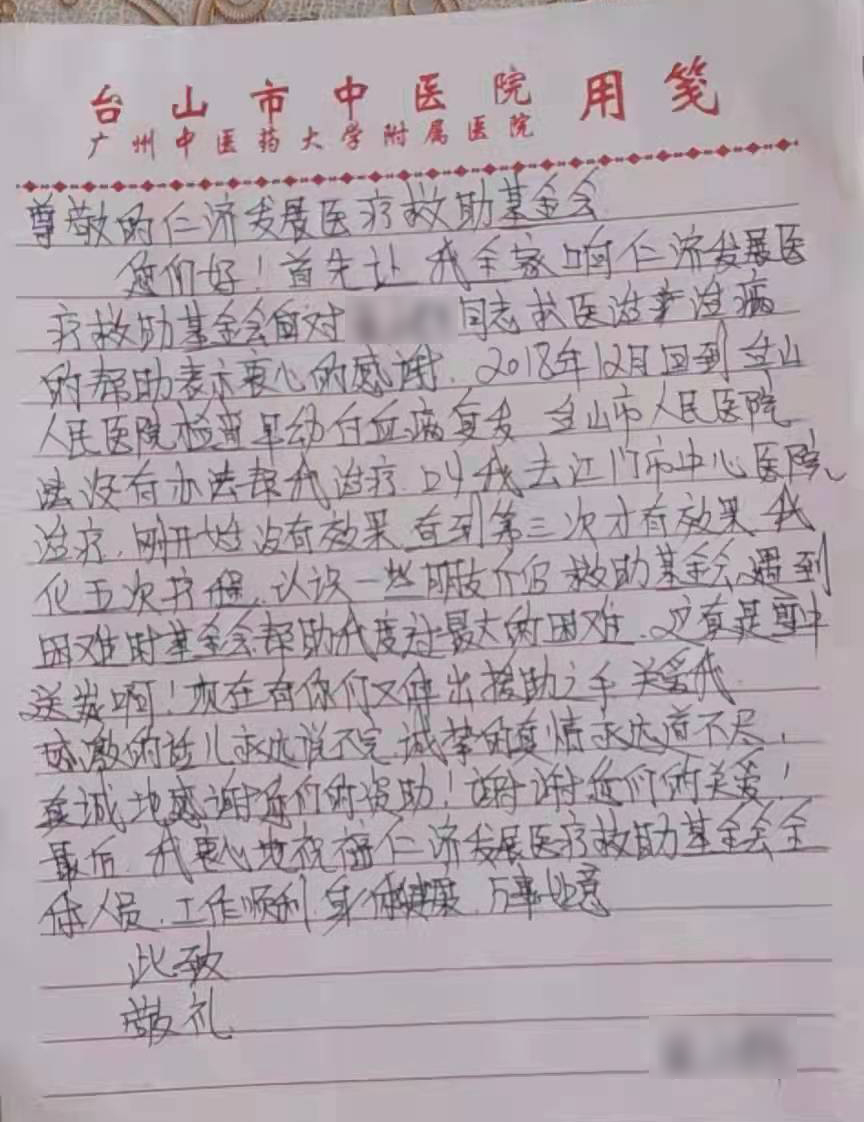 台山市中医院 用笺
广州中医药大学附属医院
尊敬的仁济发展医疗救助基金会
您们好！首先让我全家向仁济发展医
疗救助基金会自对 同志找医治病
的帮助表示衷心的感谢．2018年12月回到台山
人民医院检查早幼白血病复发 台山市人民医院
法没有办法帮我治疗 叫我去江门市中心医院
治疗．刚开始没有效果 直到第三次才有效果 我
化五次疗．认识一些朋友介绍 救助基金会 遇到
困难时基金会帮助我度过最大的困难．这真是雪中
送炭啊！现在有你们又伸出援助之手 关爱我
感激的话儿永远说不完 诚挚的真情永远道不尽．
真诚地感谢您们的资助！谢谢您们的关爱！
最后．我衷心地祝福仁济发展医疗救助基金会全
体人员．工作顺利．身体健康．万事如意
此致
敬礼